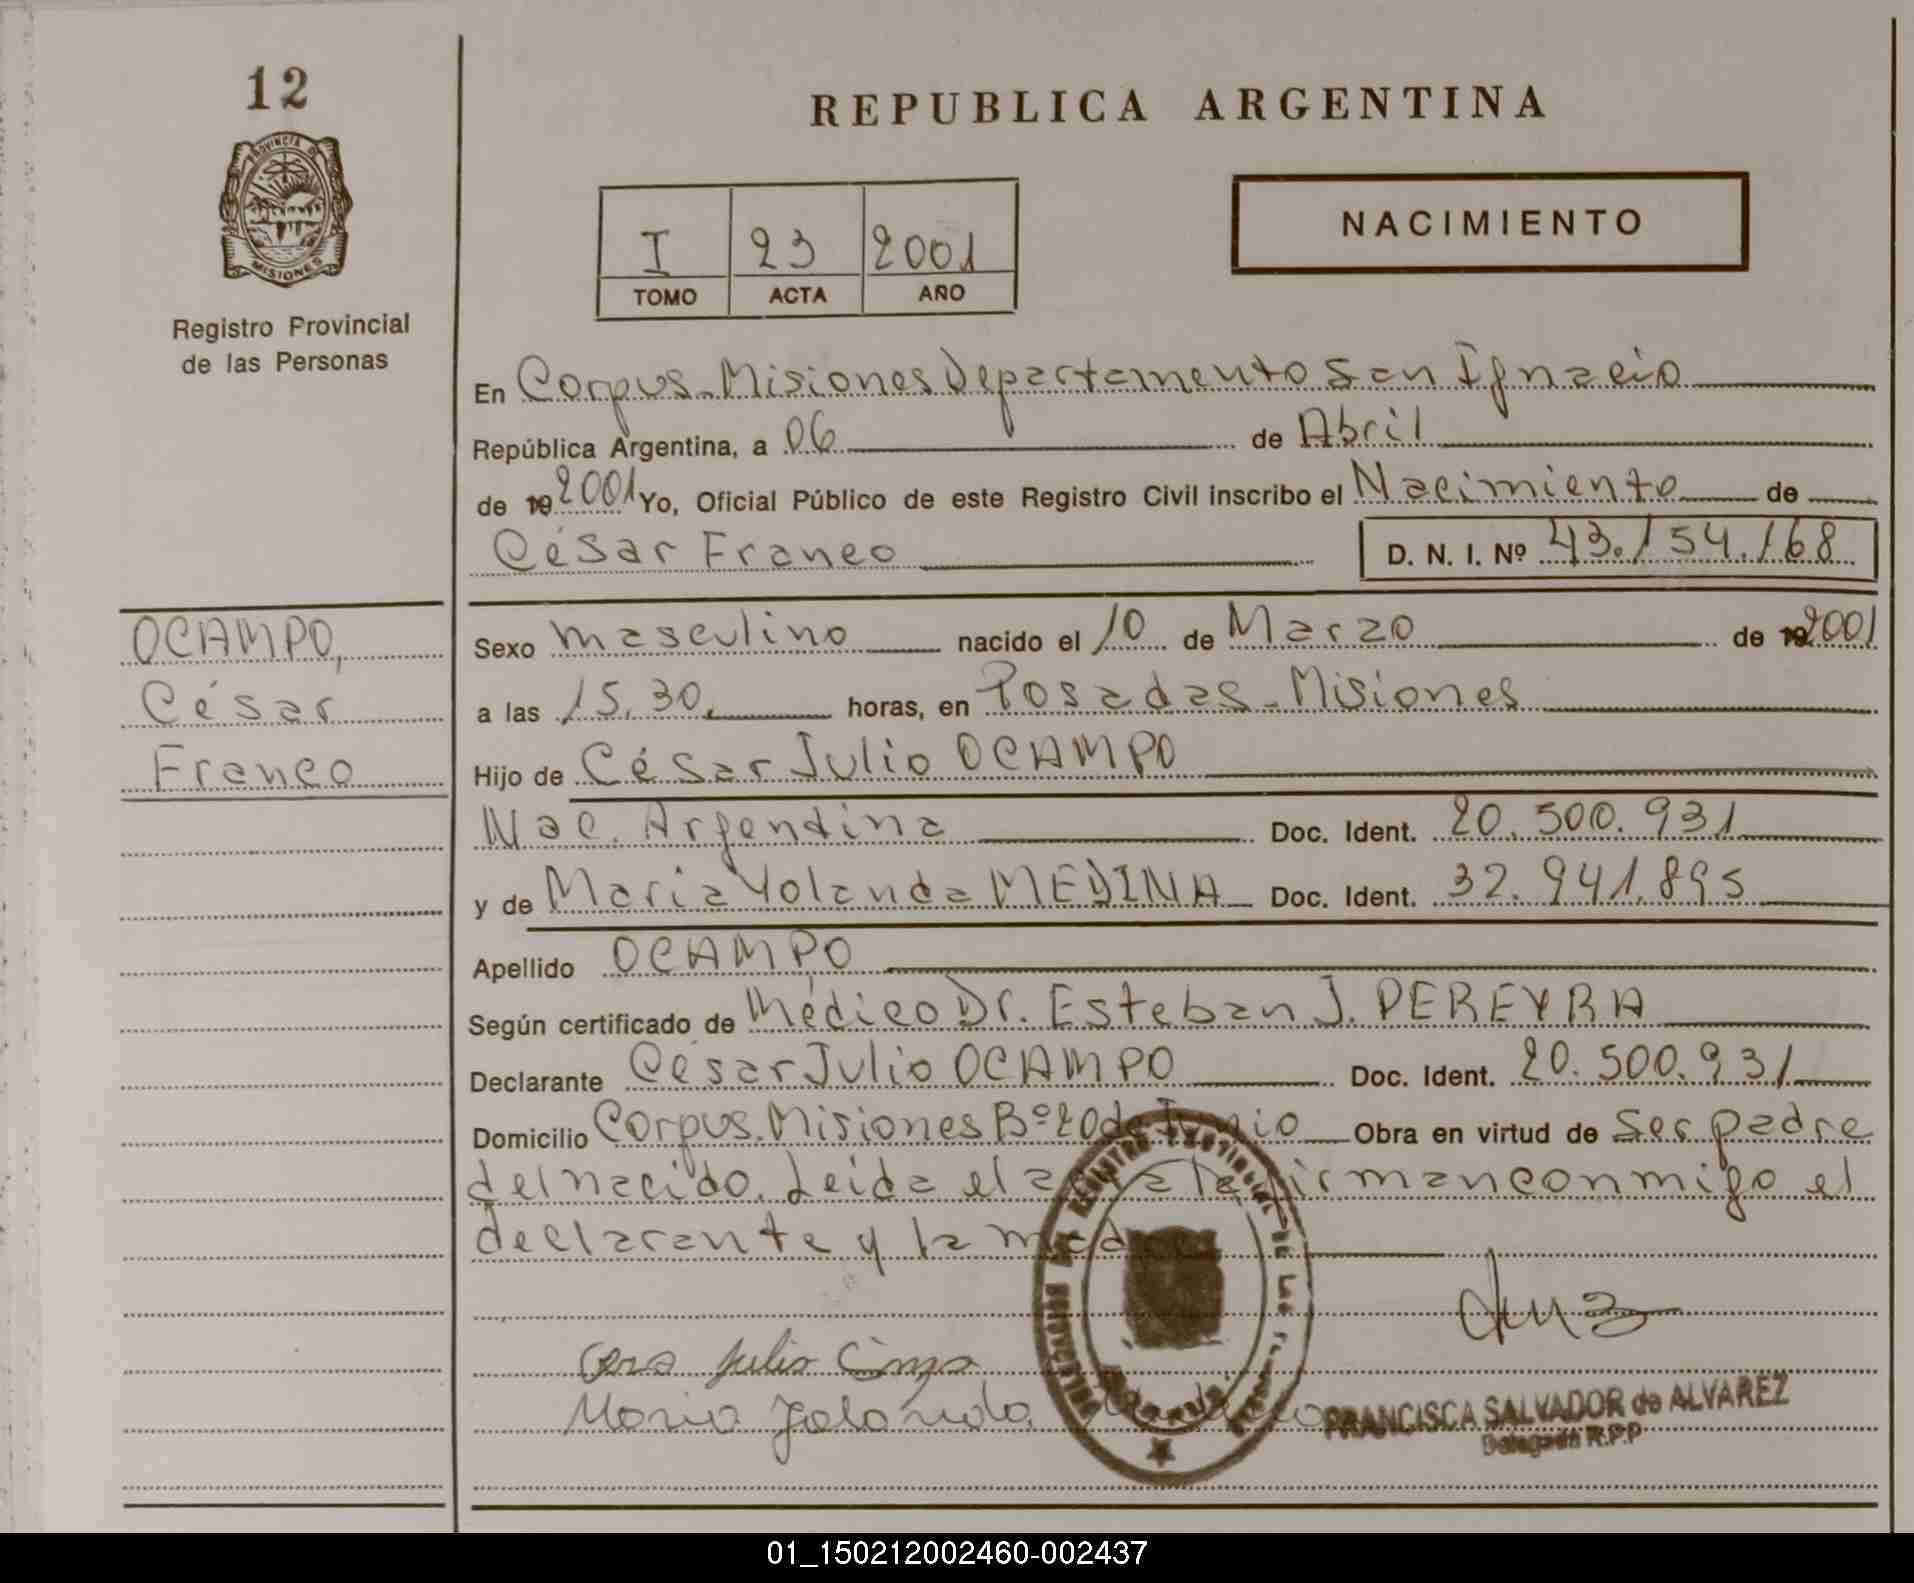 12
REPUBLICA ARGENTINA
PROVINCIA DE
MISIONES
I 23 2001
TOMO ACTA AÑO
NACIMIENTO
Registro Provincial
de las Personas
En Corpus. Misiones Departamento San Ignacio
República Argentina, a 06 de Abril
de 19 2001 Yo, Oficial Público de este Registro Civil inscribo el Nacimiento de
César Franco D. N. I. Nº 43.154.168
OCAMPO,
César
Franco
Sexo masculino nacido el 10 de Marzo de 19 2001
a las 15,30, horas, en Posadas - Misiones
Hijo de César Julio OCAMPO
Nac. Argentina Doc. Ident. 20.500.931
y de Maria Yolanda MEDINA Doc. Ident. 32.941.895
Apellido OCAMPO
Según certificado de Médico Dr. Esteban J. PEREYRA
Declarante César Julio OCAMPO Doc. Ident. 20.500.931
Domicilio Corpus. Misiones Bº 20 de Junio Obra en virtud de ser padre
del nacido. Leida el acta la firman conmigo el
declarante y la madre
Julio
Maria Yolanda
REGISTRO PROVINCIAL DE LAS
CORPUS
FRANCISCA SALVADOR de ALVAREZ
Delegada R.P.P
01_150212002460-002437